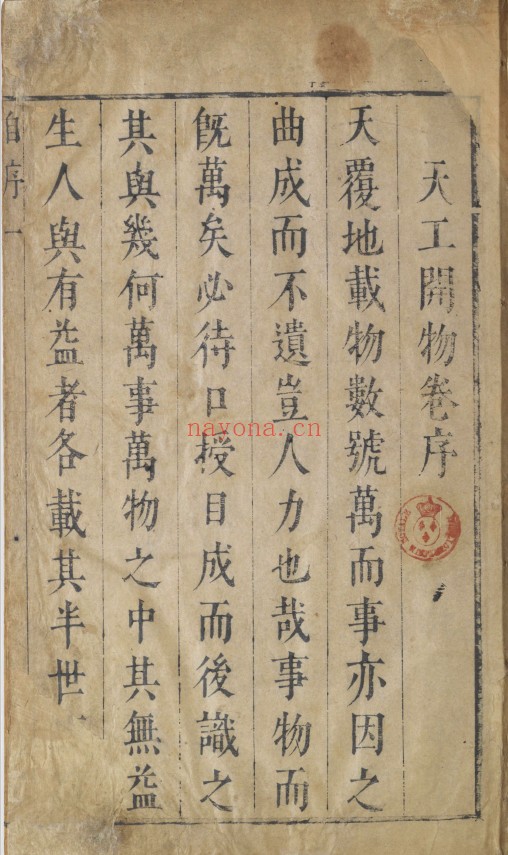 天工開物卷序
天覆地載物數號萬而事亦因之
曲成而不遺豈人力也哉事物而
旣萬矣必待口授目成而後識之
其與幾何萬事萬物之中其無益
生人與有益者各載其半世
自序 一
nayona.cn